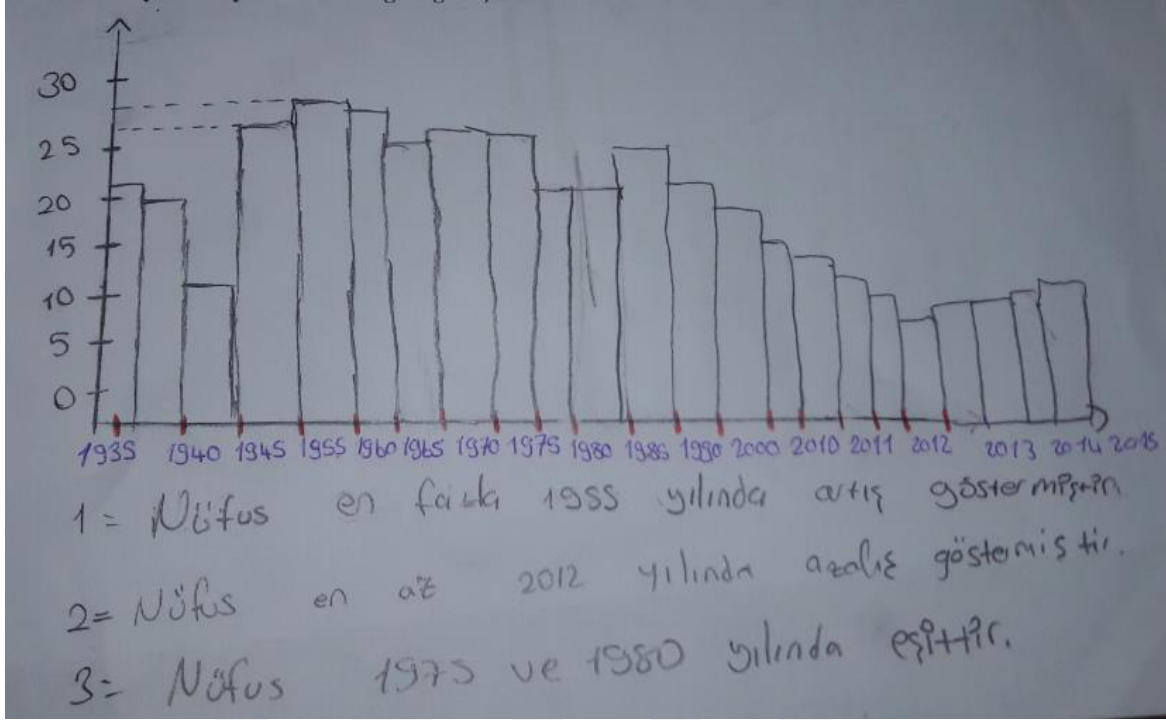 30
25
20
15
10
5
0
1935 1940 1945 1955 1960 1965 1970 1975 1980 1985 1990 2000 2010 2011 2012 2013 2014 2015
1= Nüfus en fazla 1955 yılında artış göstermiştir.
2= Nüfus en az 2012 yılında azalış göstemiştir.
3= Nüfus 1975 ve 1980 yılında eşittir.